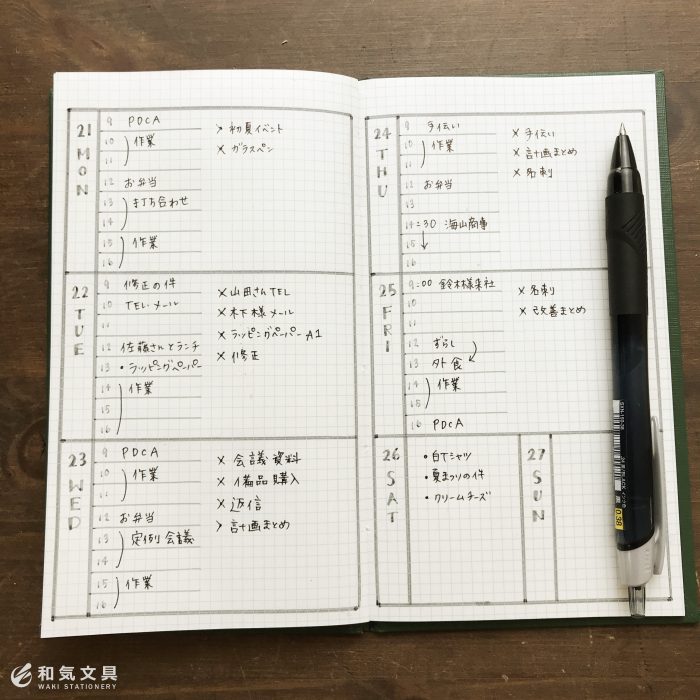 21 MON
9 PDCA
10 作業
11
12 お弁当
13 打ち合わせ
14
15 作業
16
> 初夏イベント
× ガラスペン
22 TUE
9 修正の件
10 TEL・メール
11
12 佐藤さんとランチ
13 ・ラッピングペーパー
14 作業
15
16
× 山田さんTEL
× 木下様メール
× ラッピングペーパーA1
× 修正
23 WED
9 PDCA
10 作業
11
12 お弁当
13 定例会議
14
15 作業
16
× 会議資料
× 備品購入
× 返信
> 計画まとめ
24 THU
9 手伝い
10 作業
11
12 お弁当
13
14:30 海山商事
15
16
× 手伝い
× 計画まとめ
× 名刺
25 FRI
9:00 鈴木様来社
10
11
12 ずらし
13 外食
14 作業
15
16 PDCA
× 名刺
× 改善まとめ
26 SAT
・白Tシャツ
・夏まつりの件
・クリームチーズ
27 SUN
0.38
和気文具
WAKI STATIONERY